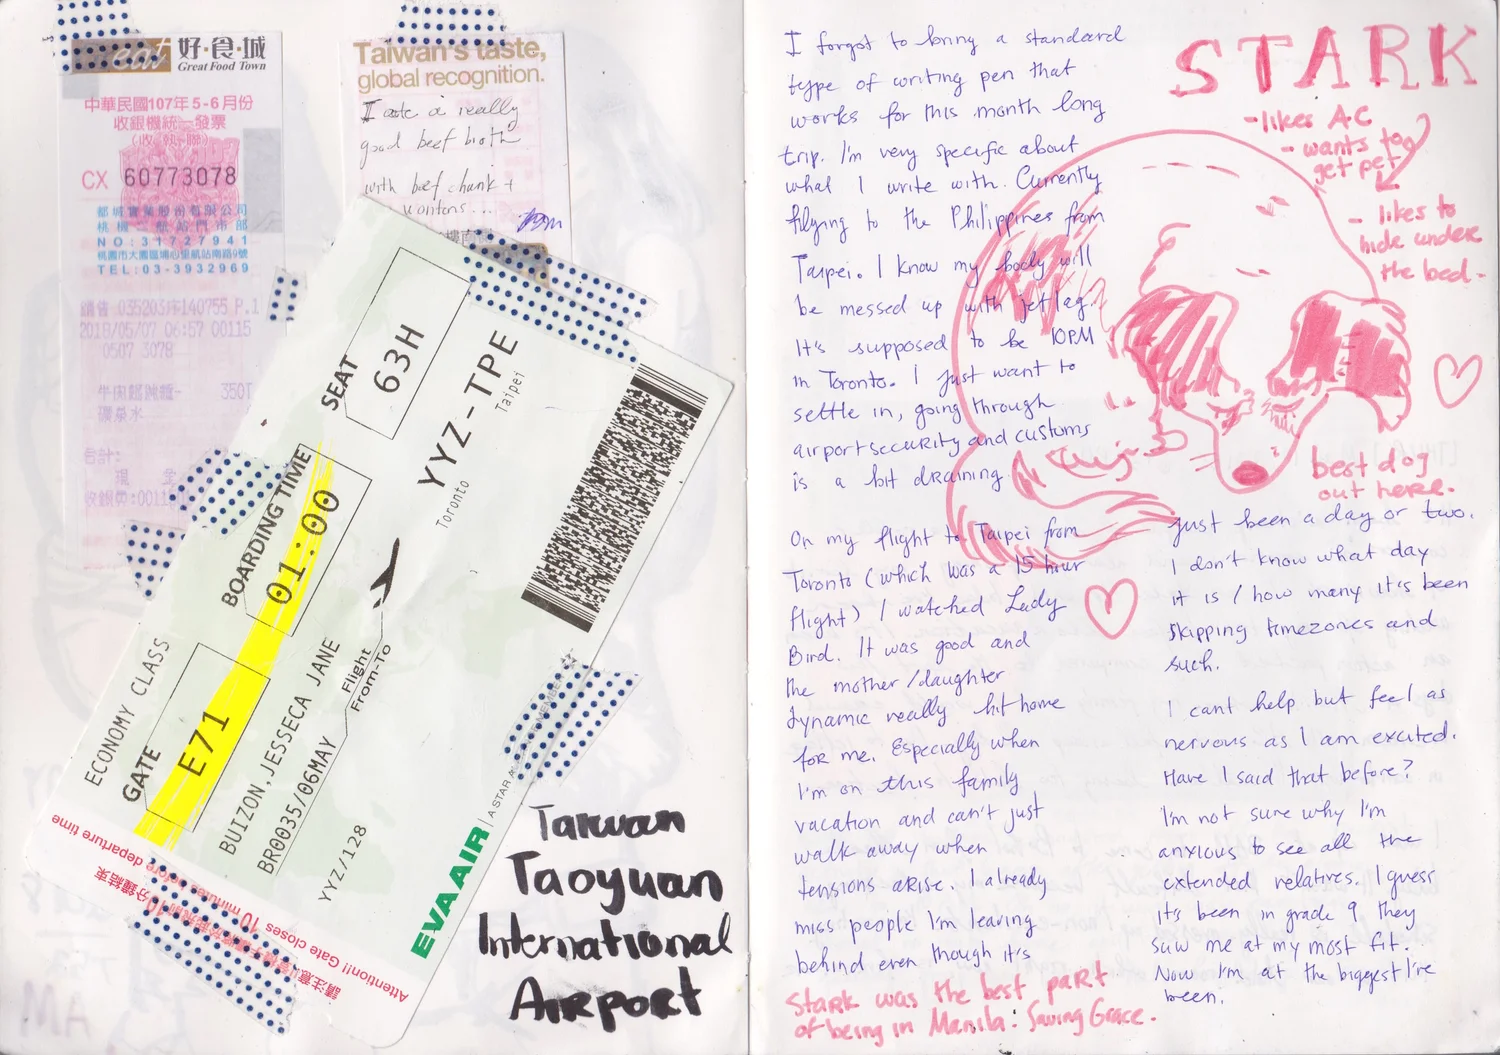 eat 好·食·城
Great Food Town
中華民國107年5-6月份
收銀機統一發票
(收執聯)
CX 60773078
都城實業股份有限公司
NO:31727941
TEL:03-3932969
2018/05/07 06:57 00115
0507 3078
350T
礦泉水
合計:
現 金
Taiwan's taste,
global recognition.
I ate a really
good beef broth
with beef chunk +
wontons...
ECONOMY CLASS
GATE
E71
BOARDING TIME
01:00
SEAT
63H
BUIZON,JESSECA JANE
BR0035/06MAY
YYZ/128
Flight
From-To
YYZ-TPE
Toronto
Taipei
EVA AIR
A STAR A
MEMBER
Attention!! Gate closes 10 minutes before departure time
Taiwan
Taoyuan
International
Airport
I forgot to bring a standard
type of writing pen that
works for this month long
trip. I'm very specific about
what I write with. Currently
flying to the Philippines from
Taipei. I know my body will
be messed up with jet lag.
It's supposed to be 10PM
in Toronto. I just want to
settle in, going through
airport security and customs
is a bit draining.
On my flight to Taipei from
Toronto (which was a 15 hour
flight) I watched Lady
Bird. It was good and
the mother/daughter
dynamic really hit home
for me. Especially when
I'm on this family
vacation and can't just
walk away when
tensions arise. I already
miss people I'm leaving
behind even though it's
just been a day or two.
I don't know what day
it is / how many it's been
skipping timezones and
such.
I cant help but feel as
nervous as I am excited.
Have I said that before?
I'm not sure why I'm
anxious to see all the
extended relatives. I guess
it's been in grade 9 they
saw me at my most fit.
Now I'm at the biggest I've
been.
STARK
-likes AC
-wants to
get pet
-likes to
hide under
the bed-
best dog
out here.
Stark was the best part
of being in Manila: Saving Grace.